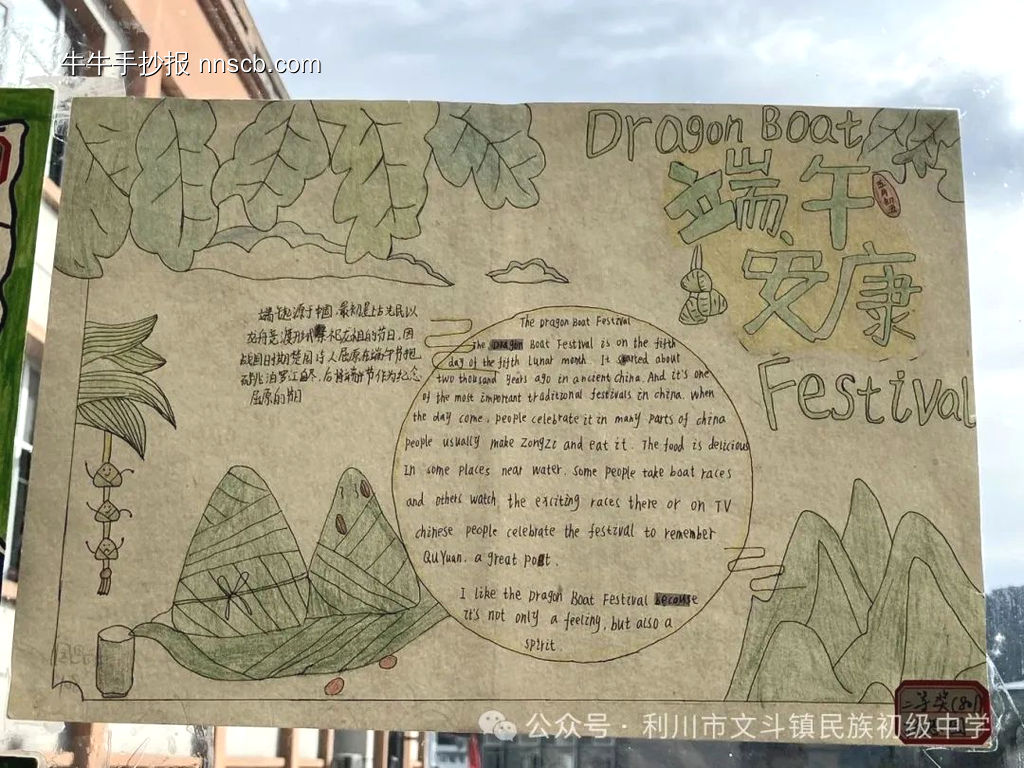 牛牛手抄报 nnscb.com
Dragon Boat
端午
五月初五
安康
Festival
端午起源于中国,最初是上古先民以
龙舟竞渡形式祭祀龙祖的节日,因
战国时期楚国诗人屈原在端午节抱
石跳汨罗江自尽,后将端午节作为纪念
屈原的节日
The Dragon Boat Festival
The Dragon Boat Festival is on the fifth
day of the fifth lunar month. It started about
two thousand years ago in ancient china. And it's one
of the most important traditional festivals in china. When
the day come, people celebrate it in many parts of china
people usually make Zongzi and eat it. The food is delicious
In some places near water. some people take boat races
and others watch the exciting races there or on TV
chinese people celebrate the festival to remember
QuYuan. a great poet.
I like the Dragon Boat Festival because
it's not only a feeling, but also a
spirit.
二等奖(801)
公众号 · 利川市文斗镇民族初级中学